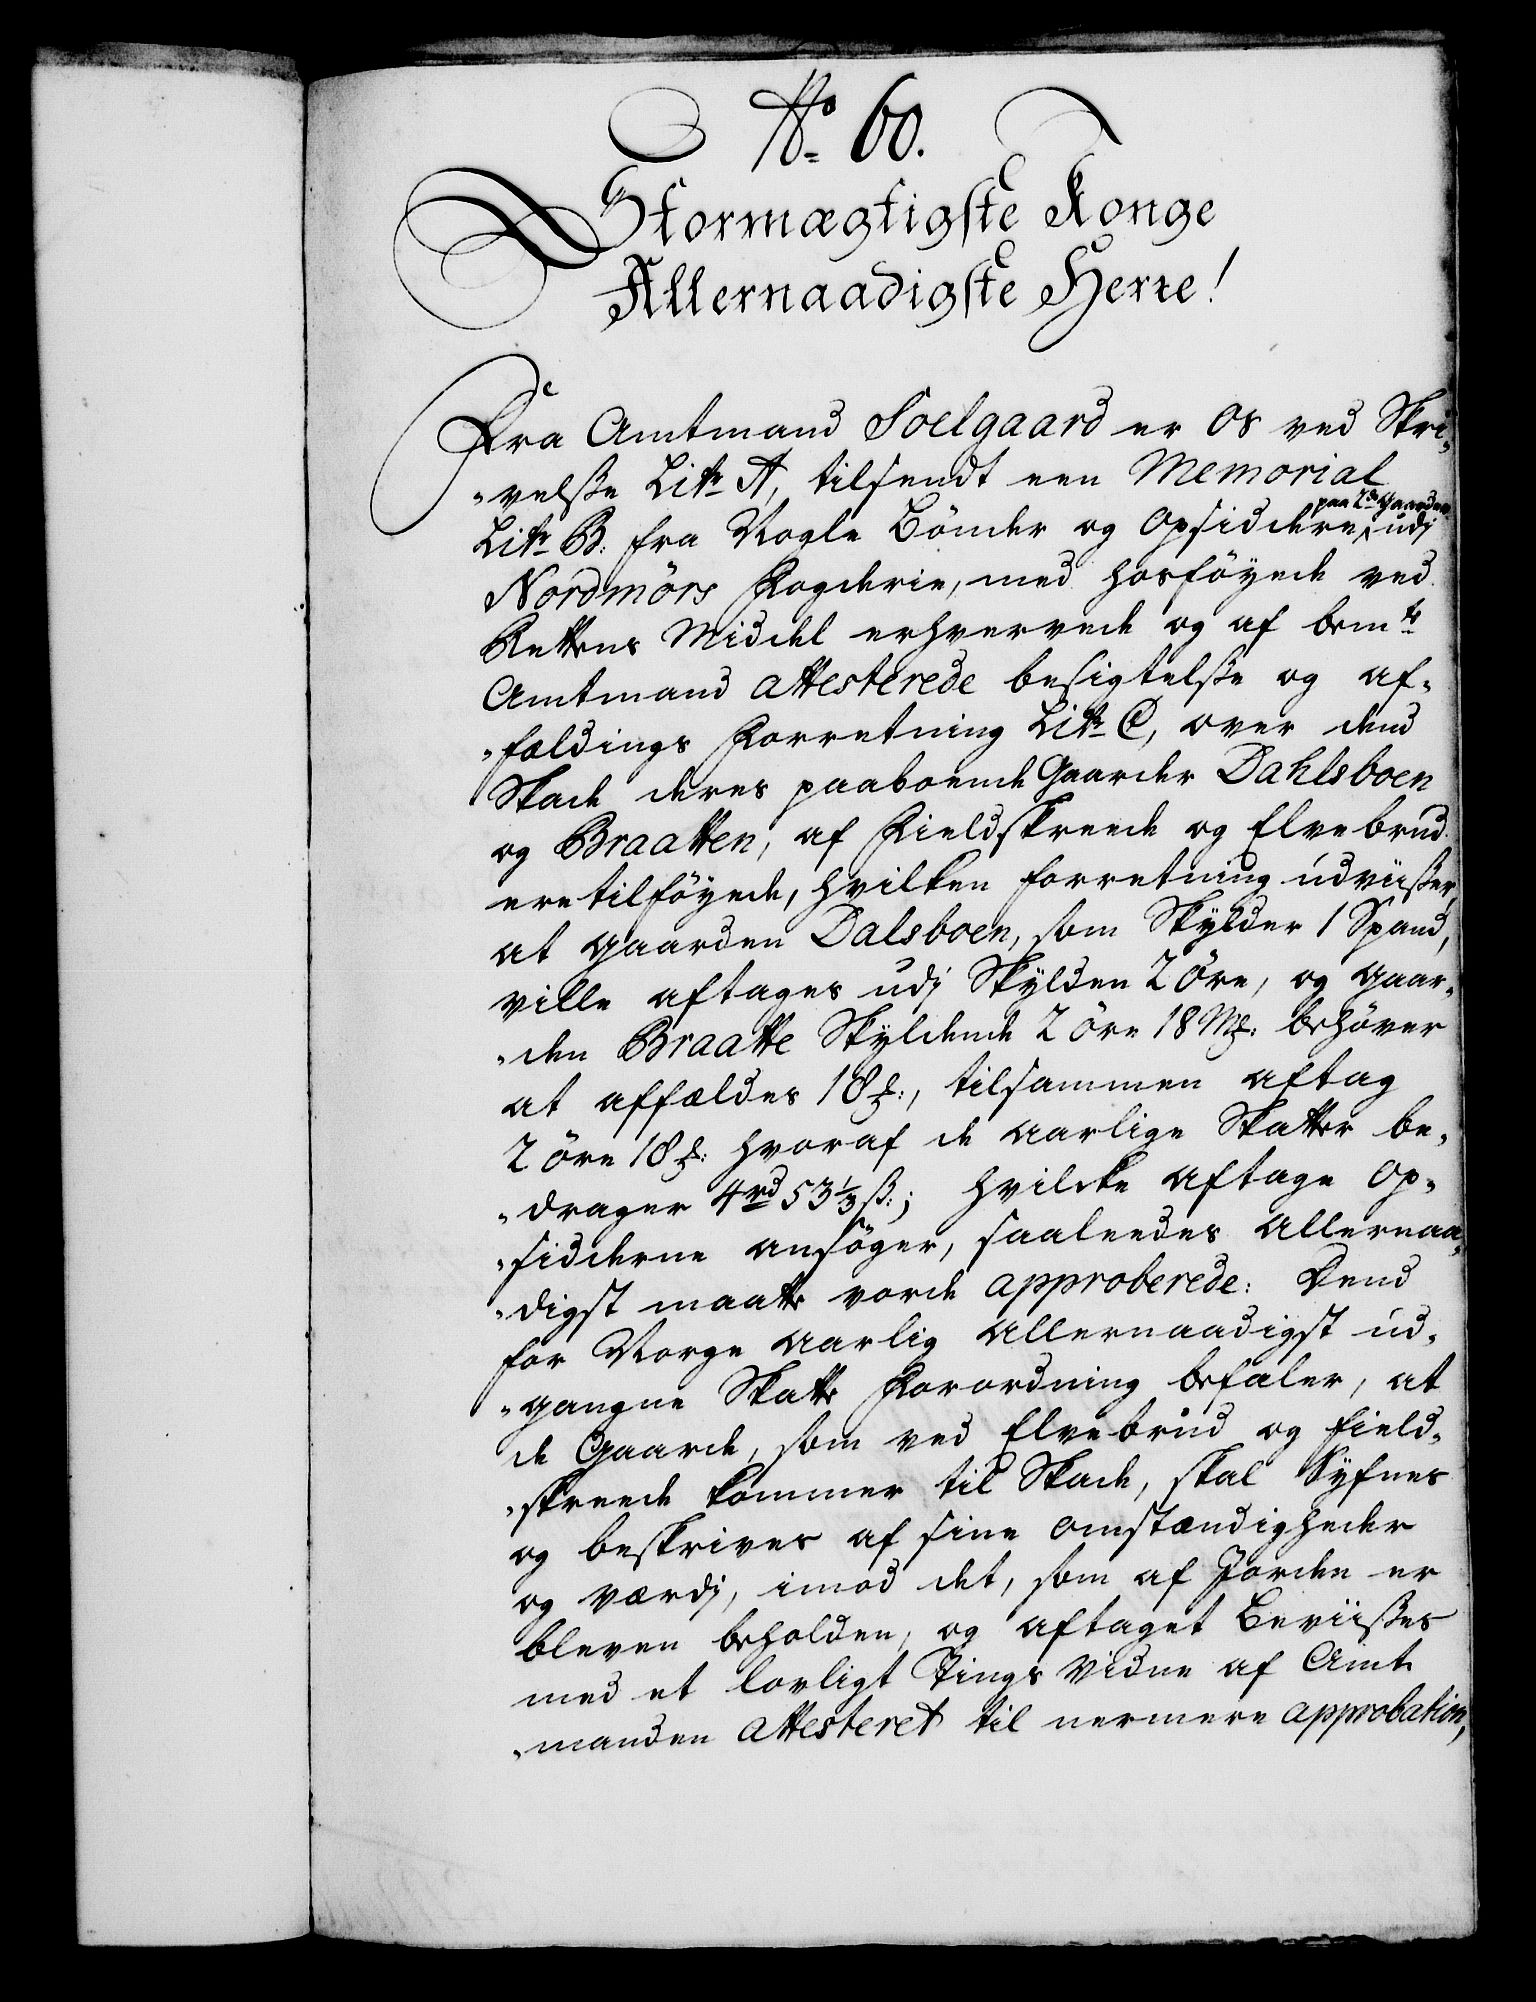 No 60.
Stormægtigste Konge
Allernaadigste Herre!
Fra Amtmand Soelgaard er os ved Skri„
„velsse Litr A, tilsendt een Memorial
Litr B. fra Nogle Bönder og Opsiddere paa 2de Gaarder udj
Nordmörs Fogderie, med hosföyede ved
Rettens Middel erhvervede og af bemte
Amtmand attesterede besigtelsse og af„
„fældings Forretning Litr C, over dend
Skade deres paaboende Gaarder Dahlsboen
og Braatten, af Fieldskreede og Elvebrud
ere tilföyede, hvilken forretning udviisser,
at gaarden Dalsboen, som Skylder 1 Spand,
ville aftages udj Skylden 2 Öre, og gaar„
„den Braatte Skyldende 2 öre 18 Mk: behöver
at affældes 18 k:, tilsammen aftag
2 öre 18 k: hvoraf de aarlige Skatter be„
„drager 4rd 53 1/3 ß:; hvilcke aftage op„
„sidderne ansöger, saaleedes allernaa„
„digst maatte vorde approberede: Dend
for Norge aarlig allernaadigst ud„
„gangne Skatte Forordning befaler, at
de Gaarde, som ved Elvebrud og field„
„skreede kommer til Skade, skal Syfnes
og beskrives af sine omstændigheder
og værdj, imod det, som af Jorden er
bleven beholden, og aftaget Beviisses
med et lovligt Tings Vidne af Amt
„manden attesteret til nermere approbation,